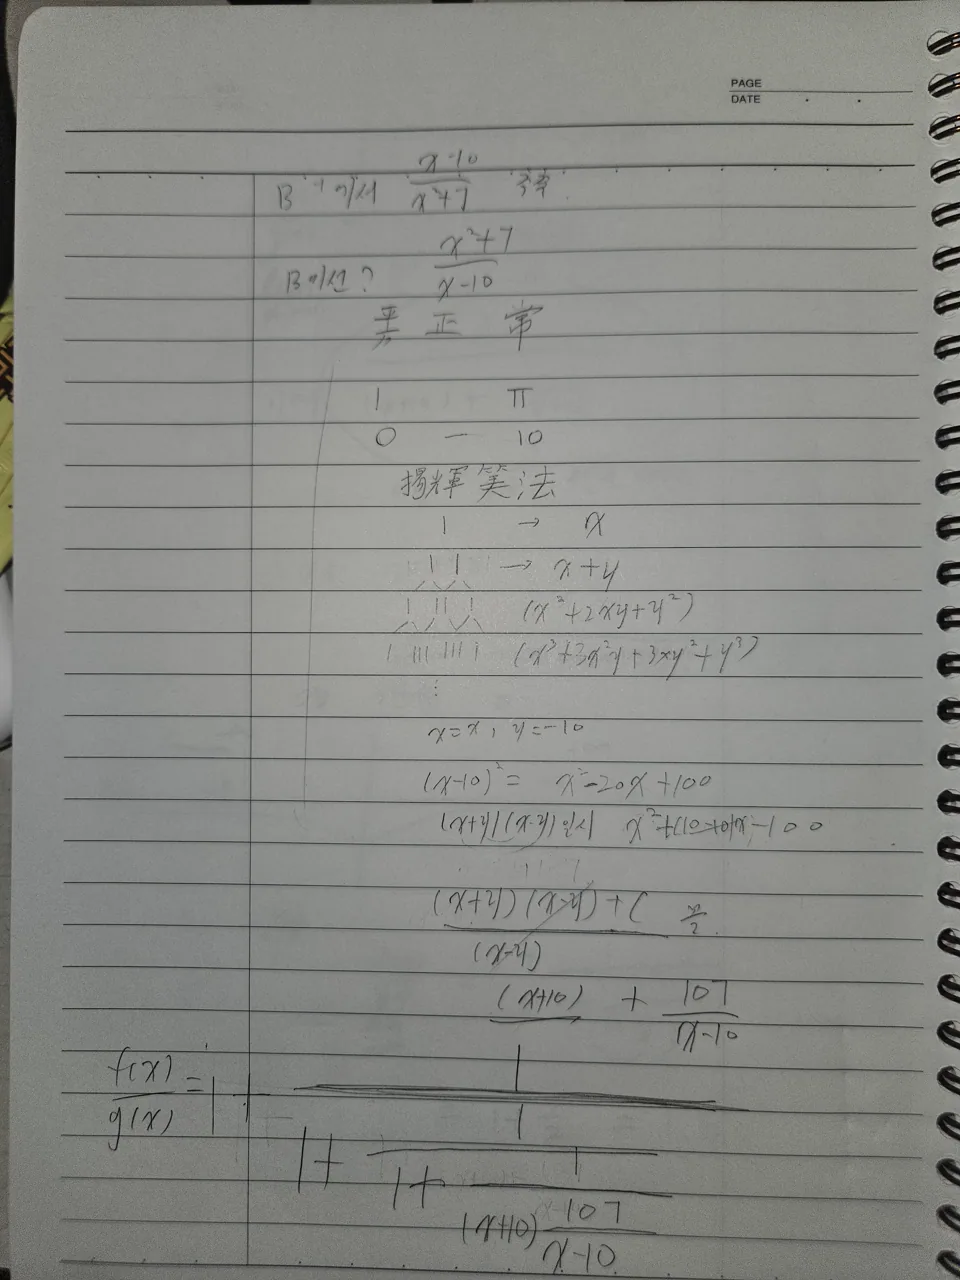 PAGE
DATE
B 에서 x-10/x²+7
B에선? x²+7/x-10
正 常
1 π
0 - 10
揚輝算法
1 → x
1 1 → x+y
1 11 1 (x²+2xy+y²)
1 111 111 1 (x³+3x²y+3xy²+y³)
⋮
x=x, y=-10
(x-10)² = x²-20x+100
(x+y)(x-y)일시 x²+(10-10)x-100
(x+y)(x-y)+C/(x-y)
(x+10) + 107/x-10
f(x)/g(x) = 1 + 1
1
1+ 1
1+
(x+10) 107/x-10